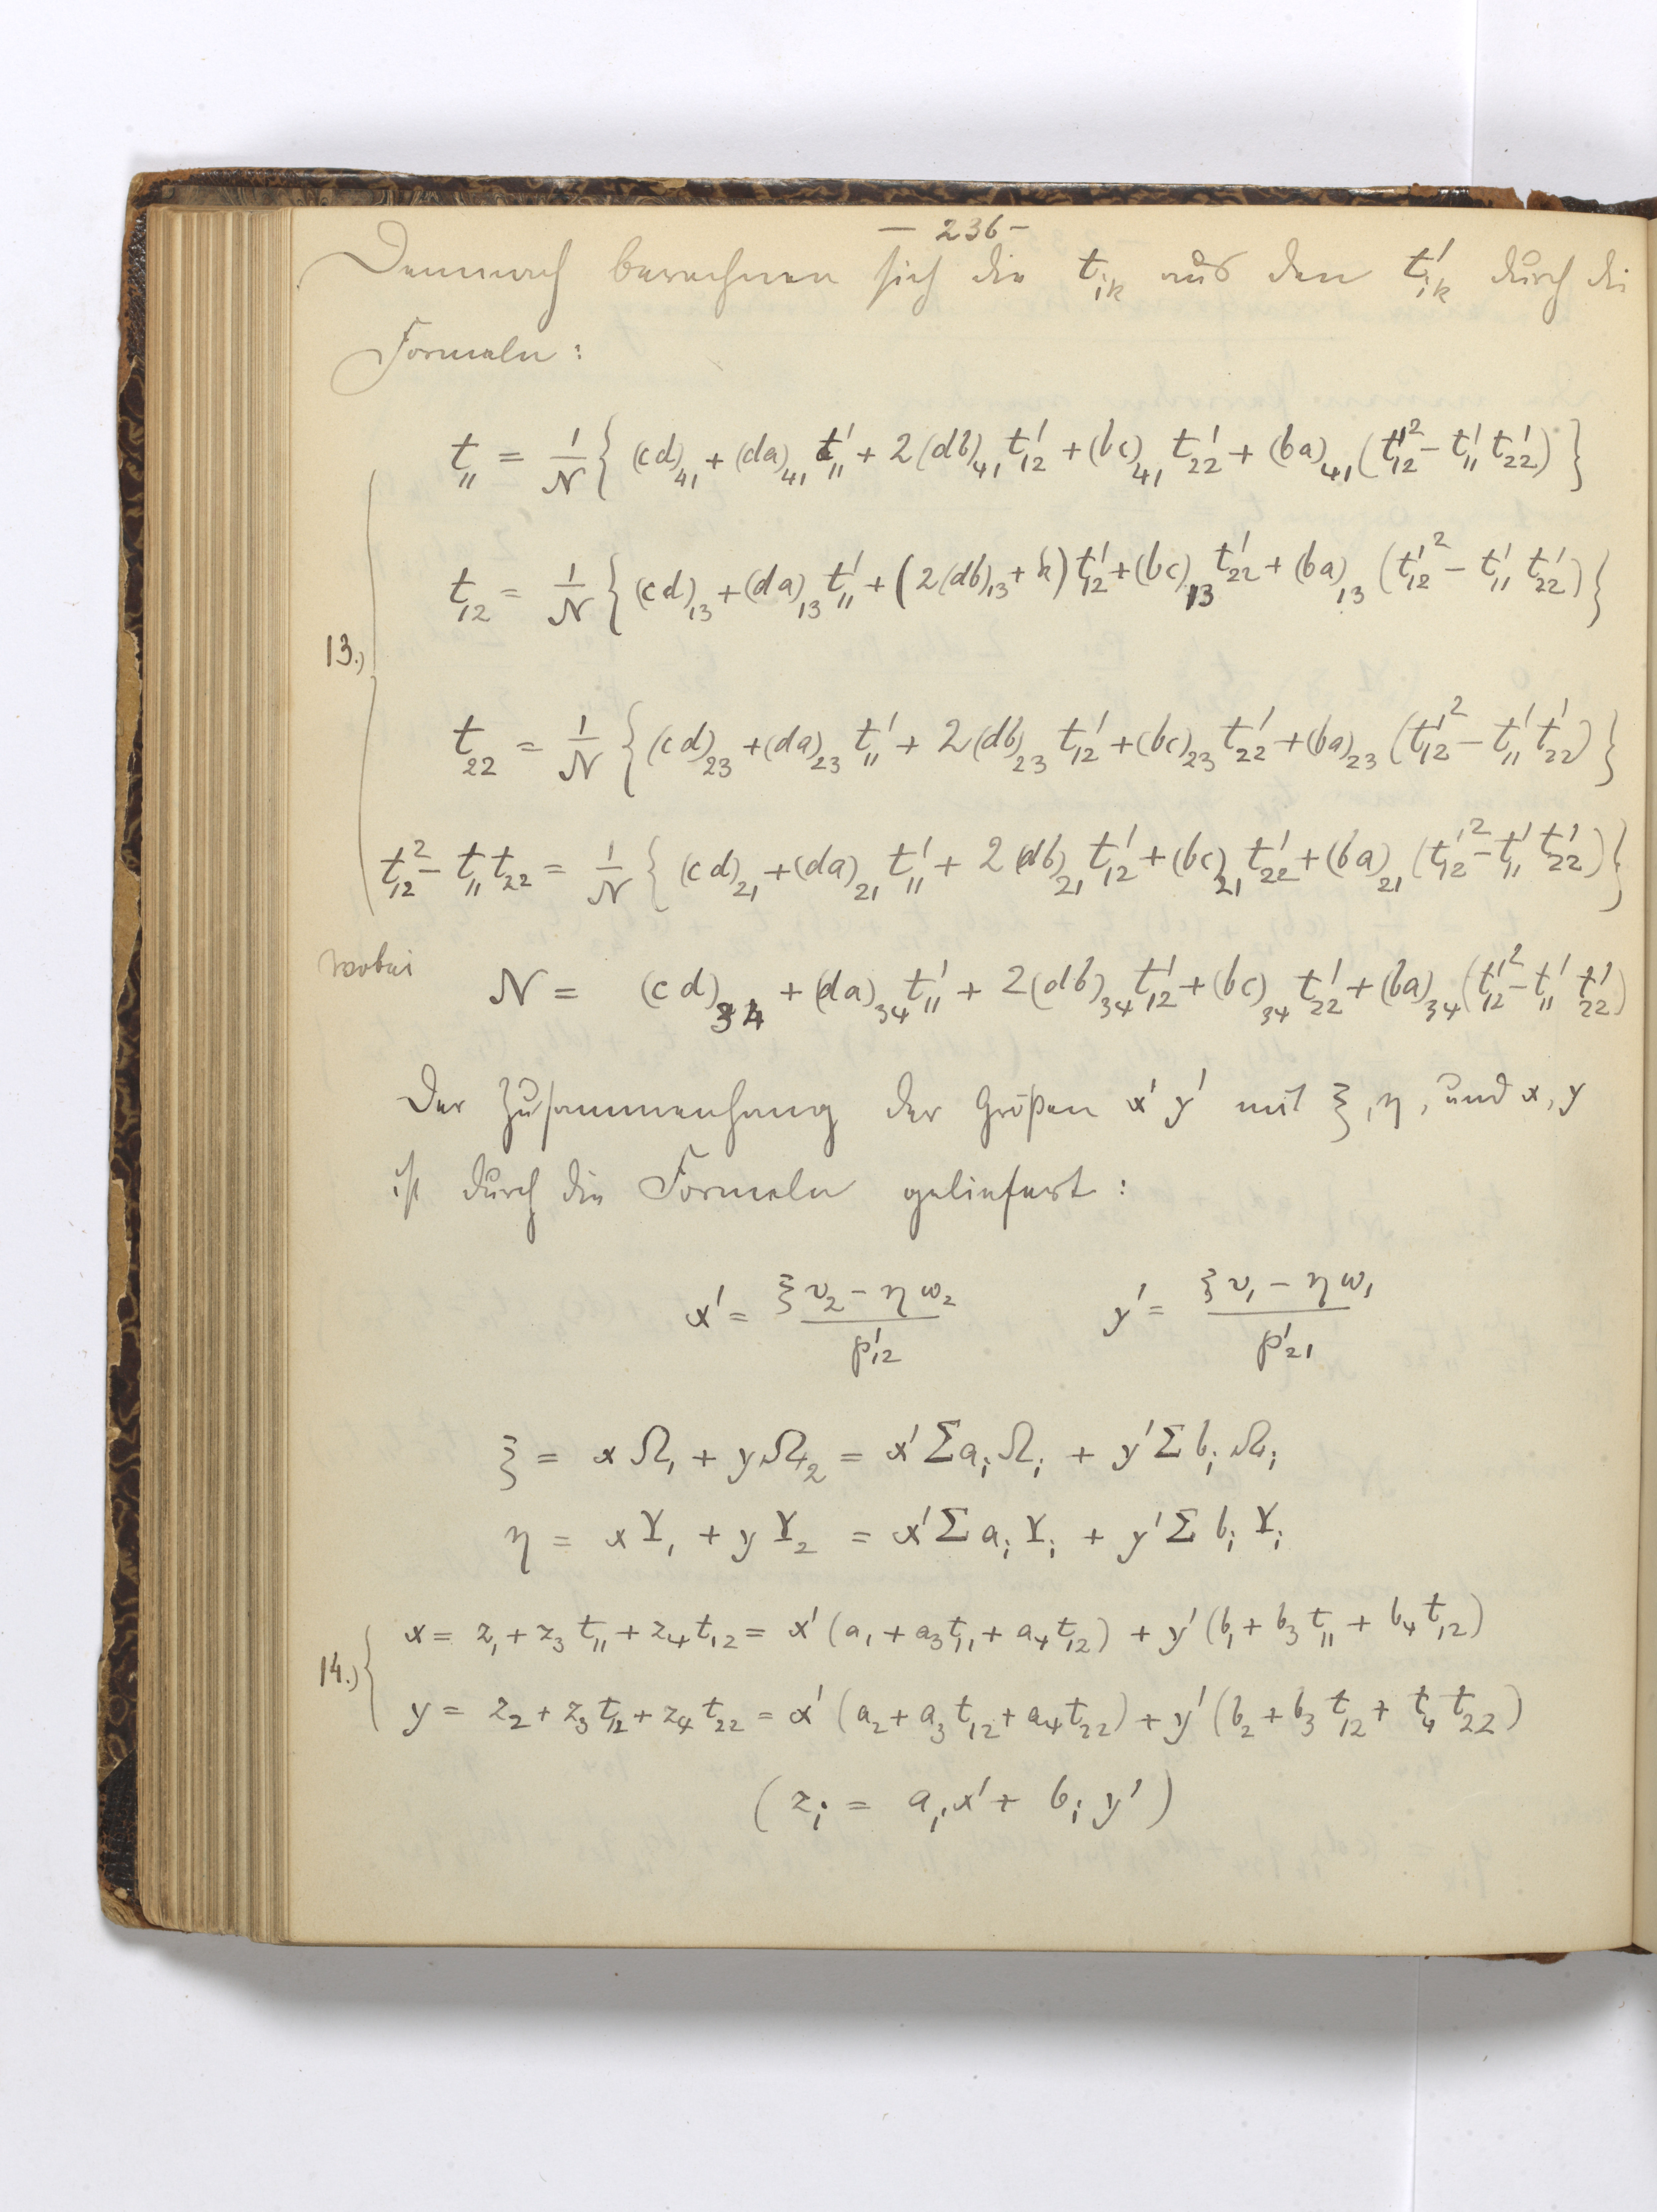 — 236 —
Demnach berechnen sich die t_{ik} aus den t'_{ik} durch die
Formeln:
t_{11} = \frac{1}{N} { (cd)_{41} + (da)_{41} t'_{11} + 2(db)_{41} t'_{12} + (bc)_{41} t'_{22} + (ba)_{41} (t'^2_{12} - t'_{11} t'_{22}) }
t_{12} = \frac{1}{N} { (cd)_{13} + (da)_{13} t'_{11} + (2(db)_{13} + k) t'_{12} + (bc)_{13} t'_{22} + (ba)_{13} (t'^2_{12} - t'_{11} t'_{22}) }
13.)
t_{22} = \frac{1}{N} { (cd)_{23} + (da)_{23} t'_{11} + 2(db)_{23} t'_{12} + (bc)_{23} t'_{22} + (ba)_{23} (t'^2_{12} - t'_{11} t'_{22}) }
t^2_{12} - t_{11} t_{22} = \frac{1}{N} { (cd)_{21} + (da)_{21} t'_{11} + 2(db)_{21} t'_{12} + (bc)_{21} t'_{22} + (ba)_{21} (t'^2_{12} - t'_{11} t'_{22}) }
wobei N = (cd)_{34} + (da)_{34} t'_{11} + 2(db)_{34} t'_{12} + (bc)_{34} t'_{22} + (ba)_{34} (t'^2_{12} - t'_{11} t'_{22})
Der Zusammenhang der Größen x' y' mit ξ, η, und x, y
ist durch die Formeln geliefert:
x' = \frac{ξ v_2 - η w_2}{p'_{12}} y' = \frac{ξ v_1 - η w_1}{p'_{21}}
ξ = x Ω_1 + y Ω_2 = x' Σ a_i Ω_i + y' Σ b_i Ω_i
η = x Y_1 + y Y_2 = x' Σ a_i Y_i + y' Σ b_i Y_i
x = z_1 + z_3 t_{11} + z_4 t_{12} = x' (a_1 + a_3 t_{11} + a_4 t_{12}) + y' (b_1 + b_3 t_{11} + b_4 t_{12})
14.)
y = z_2 + z_3 t_{12} + z_4 t_{22} = x' (a_2 + a_3 t_{12} + a_4 t_{22}) + y' (b_2 + b_3 t_{12} + t_4 t_{22})
(z_i = a_i x' + b_i y')